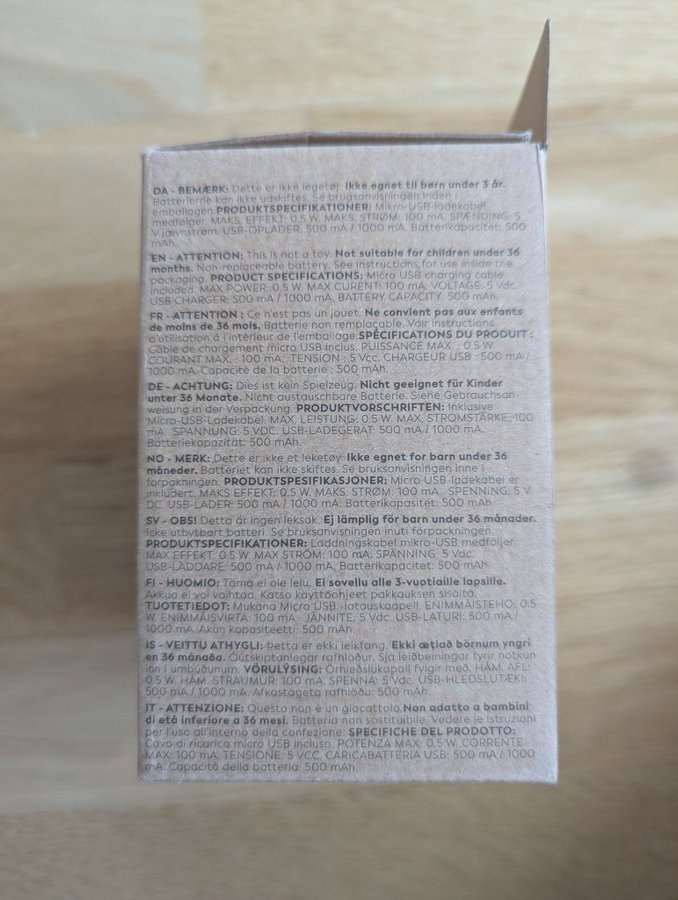 DA - BEMÆRK: Dette er ikke legetøj. Ikke egnet til børn under 3 år.
Batterierne kan ikke udskiftes. Se brugsanvisningen inden i
emballagen. PRODUKTSPECIFIKATIONER: Mikro-USB-ladekabel
medfølger. MAKS. EFFEKT: 0.5 W. MAKS. STRØM: 100 mA. SPÆNDING: 5
V jævnstrøm. USB-OPLADER: 500 mA / 1000 mA. Batterikapacitet: 500
mAh.
EN - ATTENTION: This is not a toy. Not suitable for children under 36
months. Non-replaceable battery. See instructions for use inside the
packaging. PRODUCT SPECIFICATIONS: Micro USB charging cable
included. MAX POWER: 0.5 W. MAX CURENT: 100 mA. VOLTAGE: 5 Vdc.
USB CHARGER: 500 mA / 1000 mA. BATTERY CAPACITY: 500 mAh.
FR - ATTENTION : Ce n'est pas un jouet. Ne convient pas aux enfants
de moins de 36 mois. Batterie non remplaçable. Voir instructions
d'utilisation à l'intérieur de l'emballage. SPÉCIFICATIONS DU PRODUIT :
Câble de chargement micro USB inclus. PUISSANCE MAX. : 0.5 W.
COURANT MAX. : 100 mA. TENSION : 5 Vcc. CHARGEUR USB : 500 mA /
1000 mA. Capacité de la batterie : 500 mAh.
DE - ACHTUNG: Dies ist kein Spielzeug. Nicht geeignet für Kinder
unter 36 Monate. Nicht austauschbare Batterie. Siehe Gebrauchsan-
weisung in der Verpackung. PRODUKTVORSCHRIFTEN: Inklusive
Micro-USB-Ladekabel. MAX. LEISTUNG: 0.5 W. MAX. STROMSTÄRKE: 100
mA. SPANNUNG: 5 VDC. USB-LADEGERÄT: 500 mA / 1000 mA.
Batteriekapazität: 500 mAh.
NO - MERK: Dette er ikke et leketøy. Ikke egnet for barn under 36
måneder. Batteriet kan ikke skiftes. Se bruksanvisningen inne i
forpakningen. PRODUKTSPESIFIKASJONER: Micro USB-ladekabel er
inkludert. MAKS EFFEKT: 0.5 W. MAKS. STRØM: 100 mA. SPENNING: 5 V
DC. USB-LADER: 500 mA / 1000 mA. Batterikapasitet: 500 mAh.
SV - OBS! Detta är ingen leksak. Ej lämplig för barn under 36 månader.
Icke utbytbart batteri. Se bruksanvisningen inuti förpackningen.
PRODUKTSPECIFIKATIONER: Laddningskabel mikro-USB medföljer.
MAX EFFEKT: 0.5 W. MAX STRÖM: 100 mA. SPÄNNING: 5 Vdc.
USB-LADDARE: 500 mA / 1000 mA. Batterikapacitet: 500 mAh.
FI - HUOMIO: Tämä ei ole lelu. Ei sovellu alle 3-vuotiaille lapsille.
Akkua ei voi vaihtaa. Katso käyttöohjeet pakkauksen sisältä.
TUOTETIEDOT: Mukana Micro USB -latauskaapeli. ENIMMÄISTEHO: 0.5
W. ENIMMÄISVIRTA: 100 mA. JÄNNITE: 5 Vdc. USB-LATURI: 500 mA /
1000 mA. Akun kapasiteetti: 500 mAh.
IS - VEITTU ATHYGLI: Þetta er ekki leikfang. Ekki ætlað börnum yngri
en 36 mánaða. Óútskiptanlegar rafhlöður. Sjá leiðbeiningar fyrir notkun
inn í umbúðunum. VÖRULÝSING: Örhleðslukapall fylgir með. HÁM. AFL:
0.5 W. HÁM. STRAUMUR: 100 mA. SPENNA: 5 Vdc. USB-HLEÐSLUTÆKI:
500 mA / 1000 mA. Afkastageta rafhlöðu: 500 mAh.
IT - ATTENZIONE: Questo non è un giocattolo. Non adatto a bambini
di età inferiore a 36 mesi. Batteria non sostituibile. Vedere le istruzioni
per l'uso all'interno della confezione. SPECIFICHE DEL PRODOTTO:
Cavo di ricarica micro USB incluso. POTENZA MAX: 0.5 W. CORRENTE
MAX: 100 mA. TENSIONE: 5 VCC. CARICABATTERIA USB: 500 mA / 1000
mA. Capacità della batteria: 500 mAh.